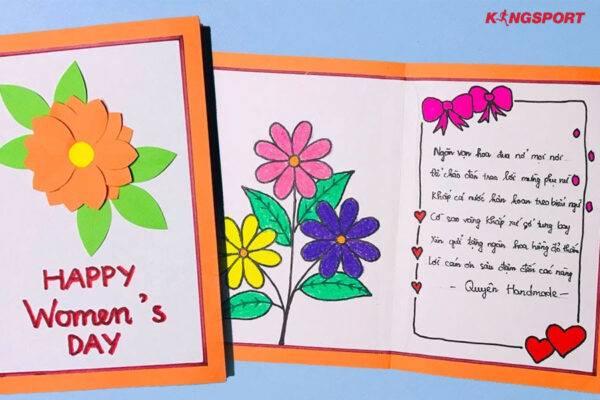 KINGSPORT
HAPPY
Women's
DAY
Ngàn vạn hoa đua nở mọi nơi
Để chào đón trao lời mừng phụ nữ
Khắp cả nước hân hoan treo biểu ngữ
Cờ sao vàng khắp xứ sở tung bay
Xin gửi tặng ngàn hoa hồng đỏ thắm
Lời cám ơn sâu đậm đến các nàng
- Quyên Handmade -